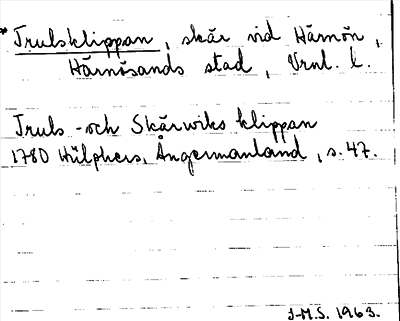 *Trulsklippan, skär vid Härnön,
Härnösands stad, Vrnl. l.
Truls- och Skärwiks klippan
1780 Hülphers, Ångermanland, s. 47.
J-M.S. 1963.